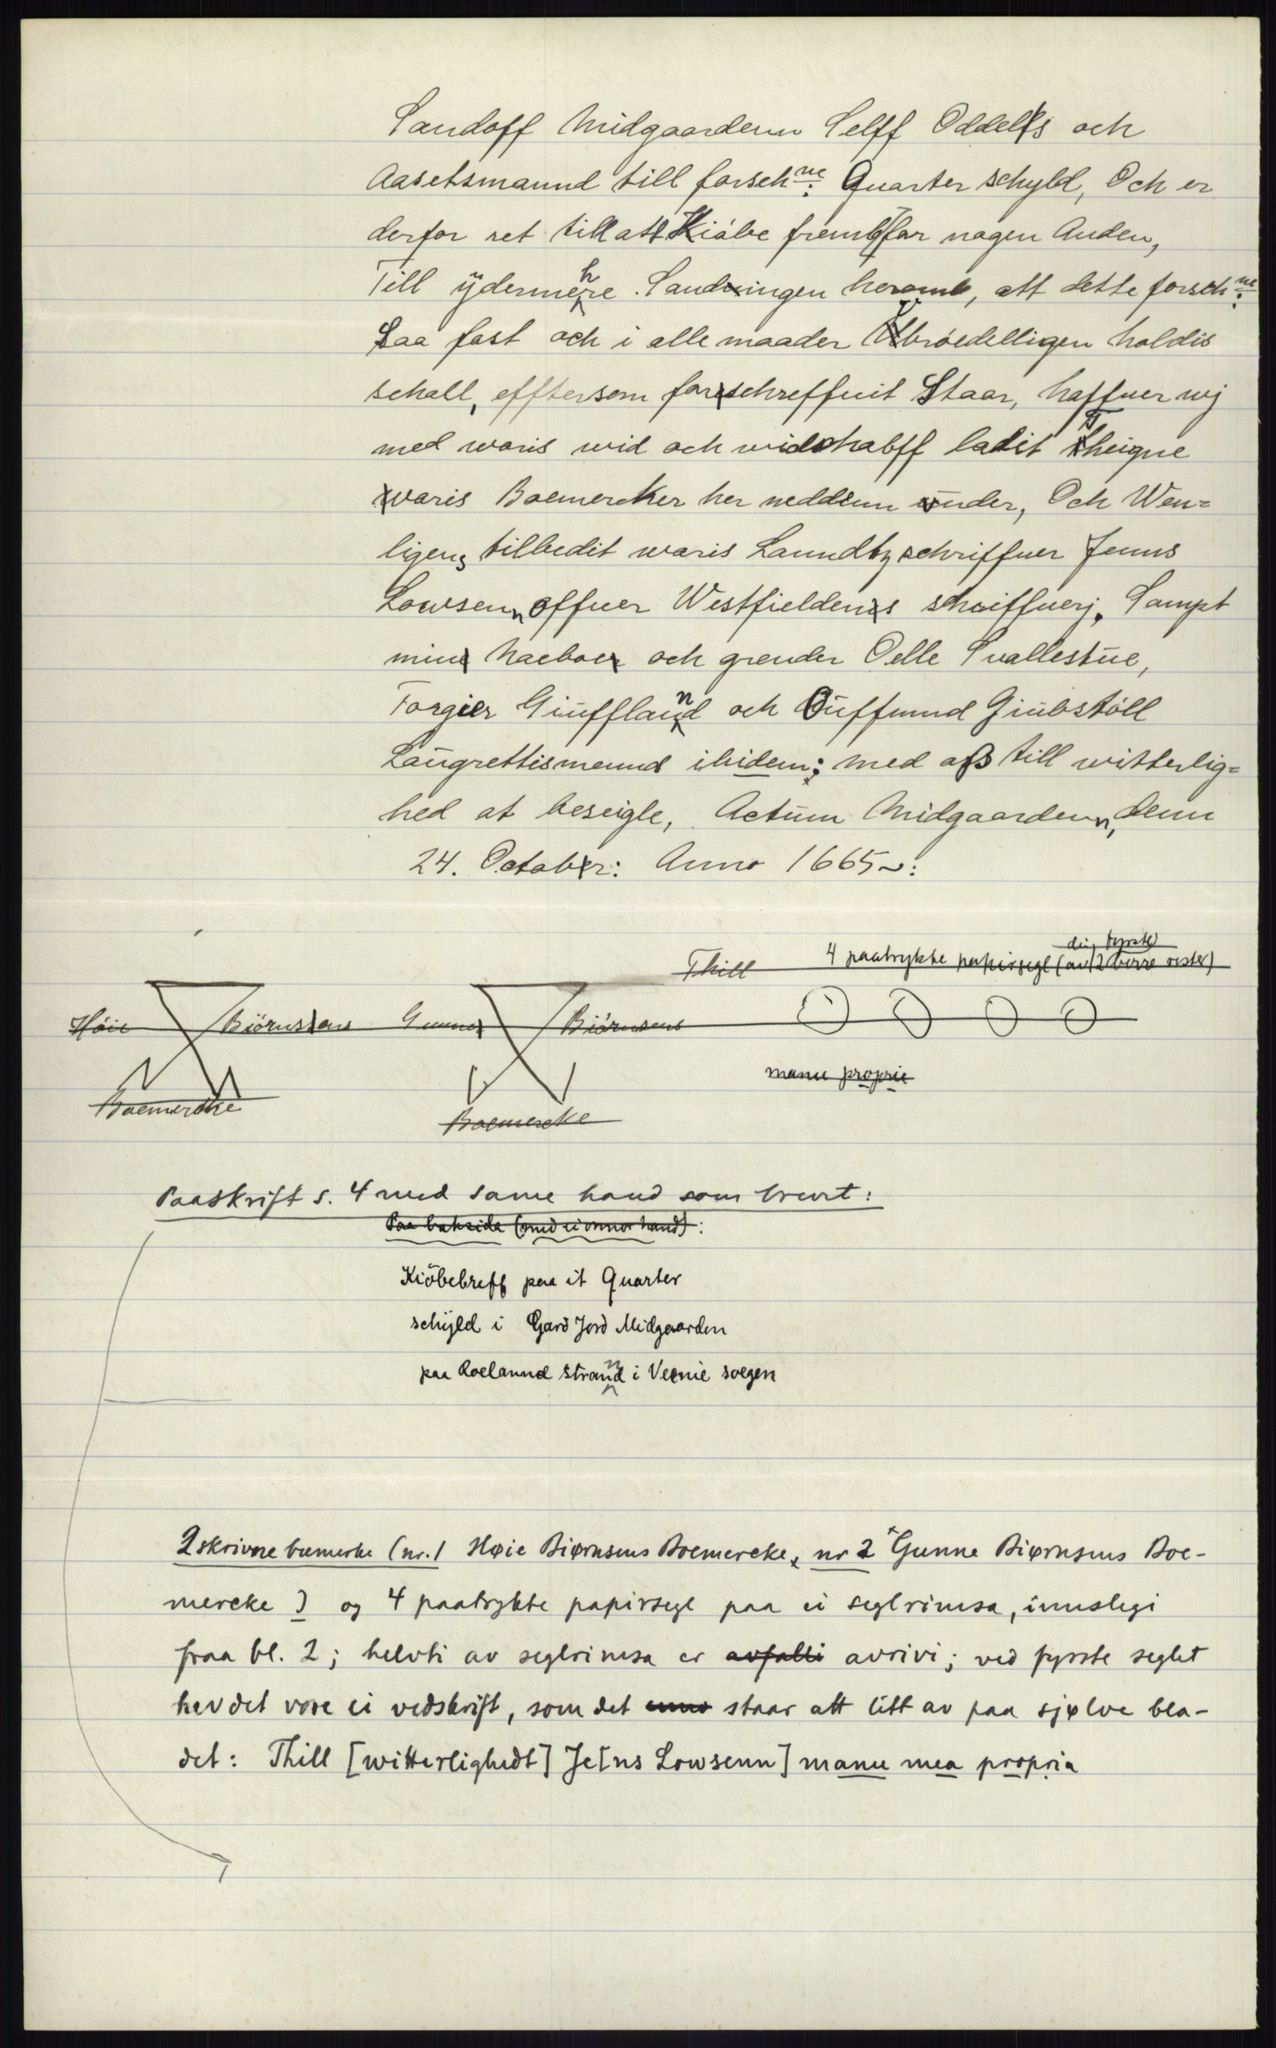 Sandoff Midgaardenn Selff Oddels och
Aasetsmannd till forschne: Quarter schyld, Och er
derfor ret till att Kiöbe fremb for nogen Anden,
Till ÿdermehre Sandingen herom, att dette forschne:
Saa fast och i alle maader Vbröedelligen holdis
schall, efftersom forschreffuit Staar, haffuer wj
med woris wid och widschabff ladit Theigne
woris Boemercker her neddenn under, Och Wen-
ligens tilbedit woris Lanndtz schriffuer Jenns
Lowsenn offuer Westfieldens schriffuerj. Sampt
min Naeboe och grender Oelle Suallestüe,
Torgier Giüfflannd och Oüffuind Giübstöll
Laügrettismennd ibidem; med aß till witterlig-
hed at beseigle, Actüm Midgaardenn, denn
24. Octobr: Anno 1665~:
din fyrste
Thill 4 paatrykte papirsegl (av 2 berre rester)
Höie Biörnsens Gunne Biörnsens
manu proprie
Boemercke
Boemercke
Paaskrift s. 4 med same hand som brevet:
Paa baksida (med ei onnor hand):
Kiöbebreff paa it Quarter
schÿld i Gard Jord Midgaarden
paa Roelannd Strannd i Vennie soegen
2 skrivne bumerke (nr. 1 Høie Biørnsens Boemercke, nr 2 Gunne Biørnsens Boe-
mercke) og 4 paatrykte papirsegl paa ei seglrimsa, innslegi
fraa bl. 2; helvti av seglrimsa er avfalli avrivi; ved fyrste seglet
hev det vore ei vedskrift, som det enno staar att litt av paa sjølve bla-
det: Thill [witterlighedt] Je[ns Lowsenn] manu mea propria